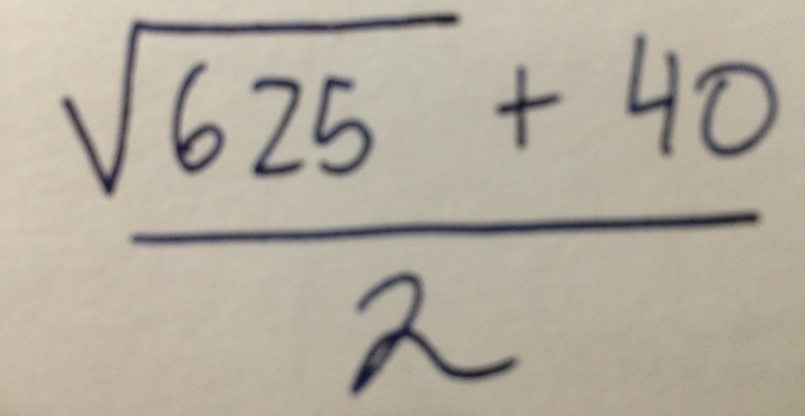 √625 + 40
2